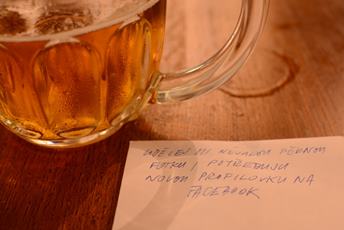 UDĚLEJ MI NĚJAKOU PĚKNOU
FOTKU, POTŘEBUJU
NOVOU PROFILOVKU NA
FACEBOOK